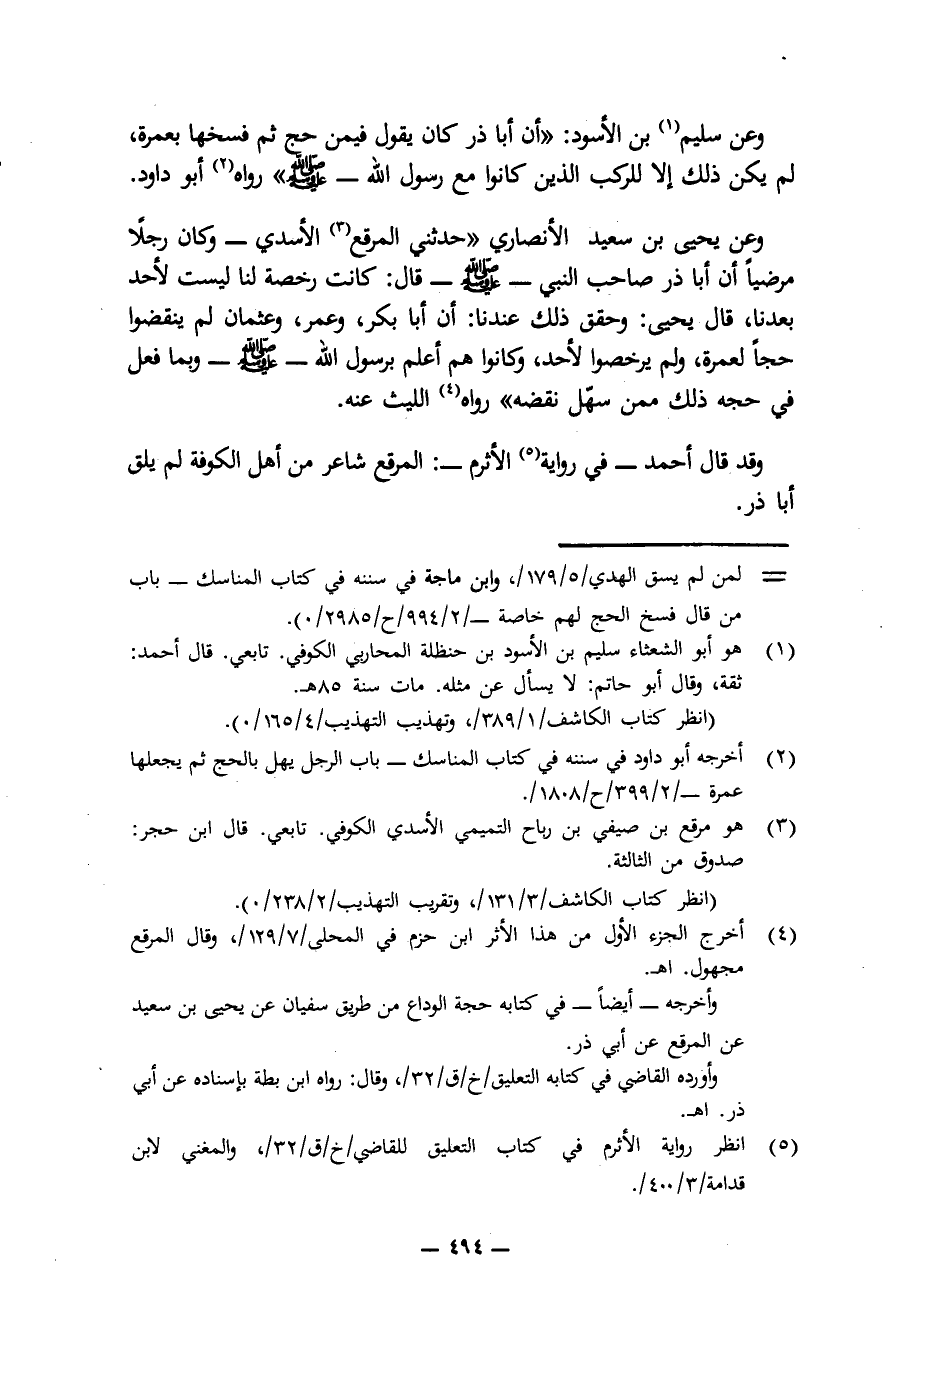 وعن سليم(١) بن الأسود: «أن أبا ذر كان يقول فيمن حج ثم فسخها بعمرة،
لم يكن ذلك إلا للركب الذين كانوا مع رسول الله ــ ﷺ» رواه(٢) أبو داود.
وعن يحيى بن سعيد الأنصاري «حدثني المرقع(٣) الأسدي ــ وكان رجلًا
مرضياً أن أبا ذر صاحب النبي ــ ﷺ ــ قال: كانت رخصة لنا ليست لأحد
بعدنا، قال يحيى: وحقق ذلك عندنا: أن أبا بكر، وعمر، وعثمان لم ينقضوا
حجاً لعمرة، ولم يرخصوا لأحد، وكانوا هم أعلم برسول الله ــ ﷺ ــ وبما فعل
في حجه ذلك ممن سهّل نقضه» رواه(٤) الليث عنه.
وقد قال أحمد ــ في رواية(٥) الأثرم ــ: المرقع شاعر من أهل الكوفة لم يلق
أبا ذر.
= لمن لم يسق الهدي/١٧٩/٥/، وابن ماجة في سننه في كتاب المناسك ــ باب
من قال فسخ الحج لهم خاصة ــ/٩٩٤/٢/ح/٢٩٨٥/٠).
(١) هو أبو الشعثاء سليم بن الأسود بن حنظلة المحاربي الكوفي. تابعي. قال أحمد:
ثقة، وقال أبو حاتم: لا يسأل عن مثله. مات سنة ٨٥هـ.
(انظر كتاب الكاشف/٣٨٩/١/، وتهذيب التهذيب/١٦٥/٤/٠).
(٢) أخرجه أبو داود في سننه في كتاب المناسك ــ باب الرجل يهل بالحج ثم يجعلها
عمرة ــ/٣٩٩/٢/ح/١٨٠٨/.
(٣) هو مرقع بن صيفي بن رباح التميمي الأسدي الكوفي. تابعي. قال ابن حجر:
صدوق من الثالثة.
(انظر كتاب الكاشف/١٣١/٣/، وتقريب التهذيب/٢٣٨/٢/٠).
(٤) أخرج الجزء الأول من هذا الأثر ابن حزم في المحلى/١٢٩/٧/، وقال المرقع
مجهول. اهـ.
وأخرجه ــ أيضاً ــ في كتابه حجة الوداع من طريق سفيان عن يحيى بن سعيد
عن المرقع عن أبي ذر.
وأورده القاضي في كتابه التعليق/خ/ق/٣٢/، وقال: رواه ابن بطة بإسناده عن أبي
ذر. اهـ.
(٥) انظر رواية الأثرم في كتاب التعليق للقاضي/خ/ق/٣٢/، والمغني لابن
قدامة/٤٠٠/٣/.
ــ ٤٩٤ ــ